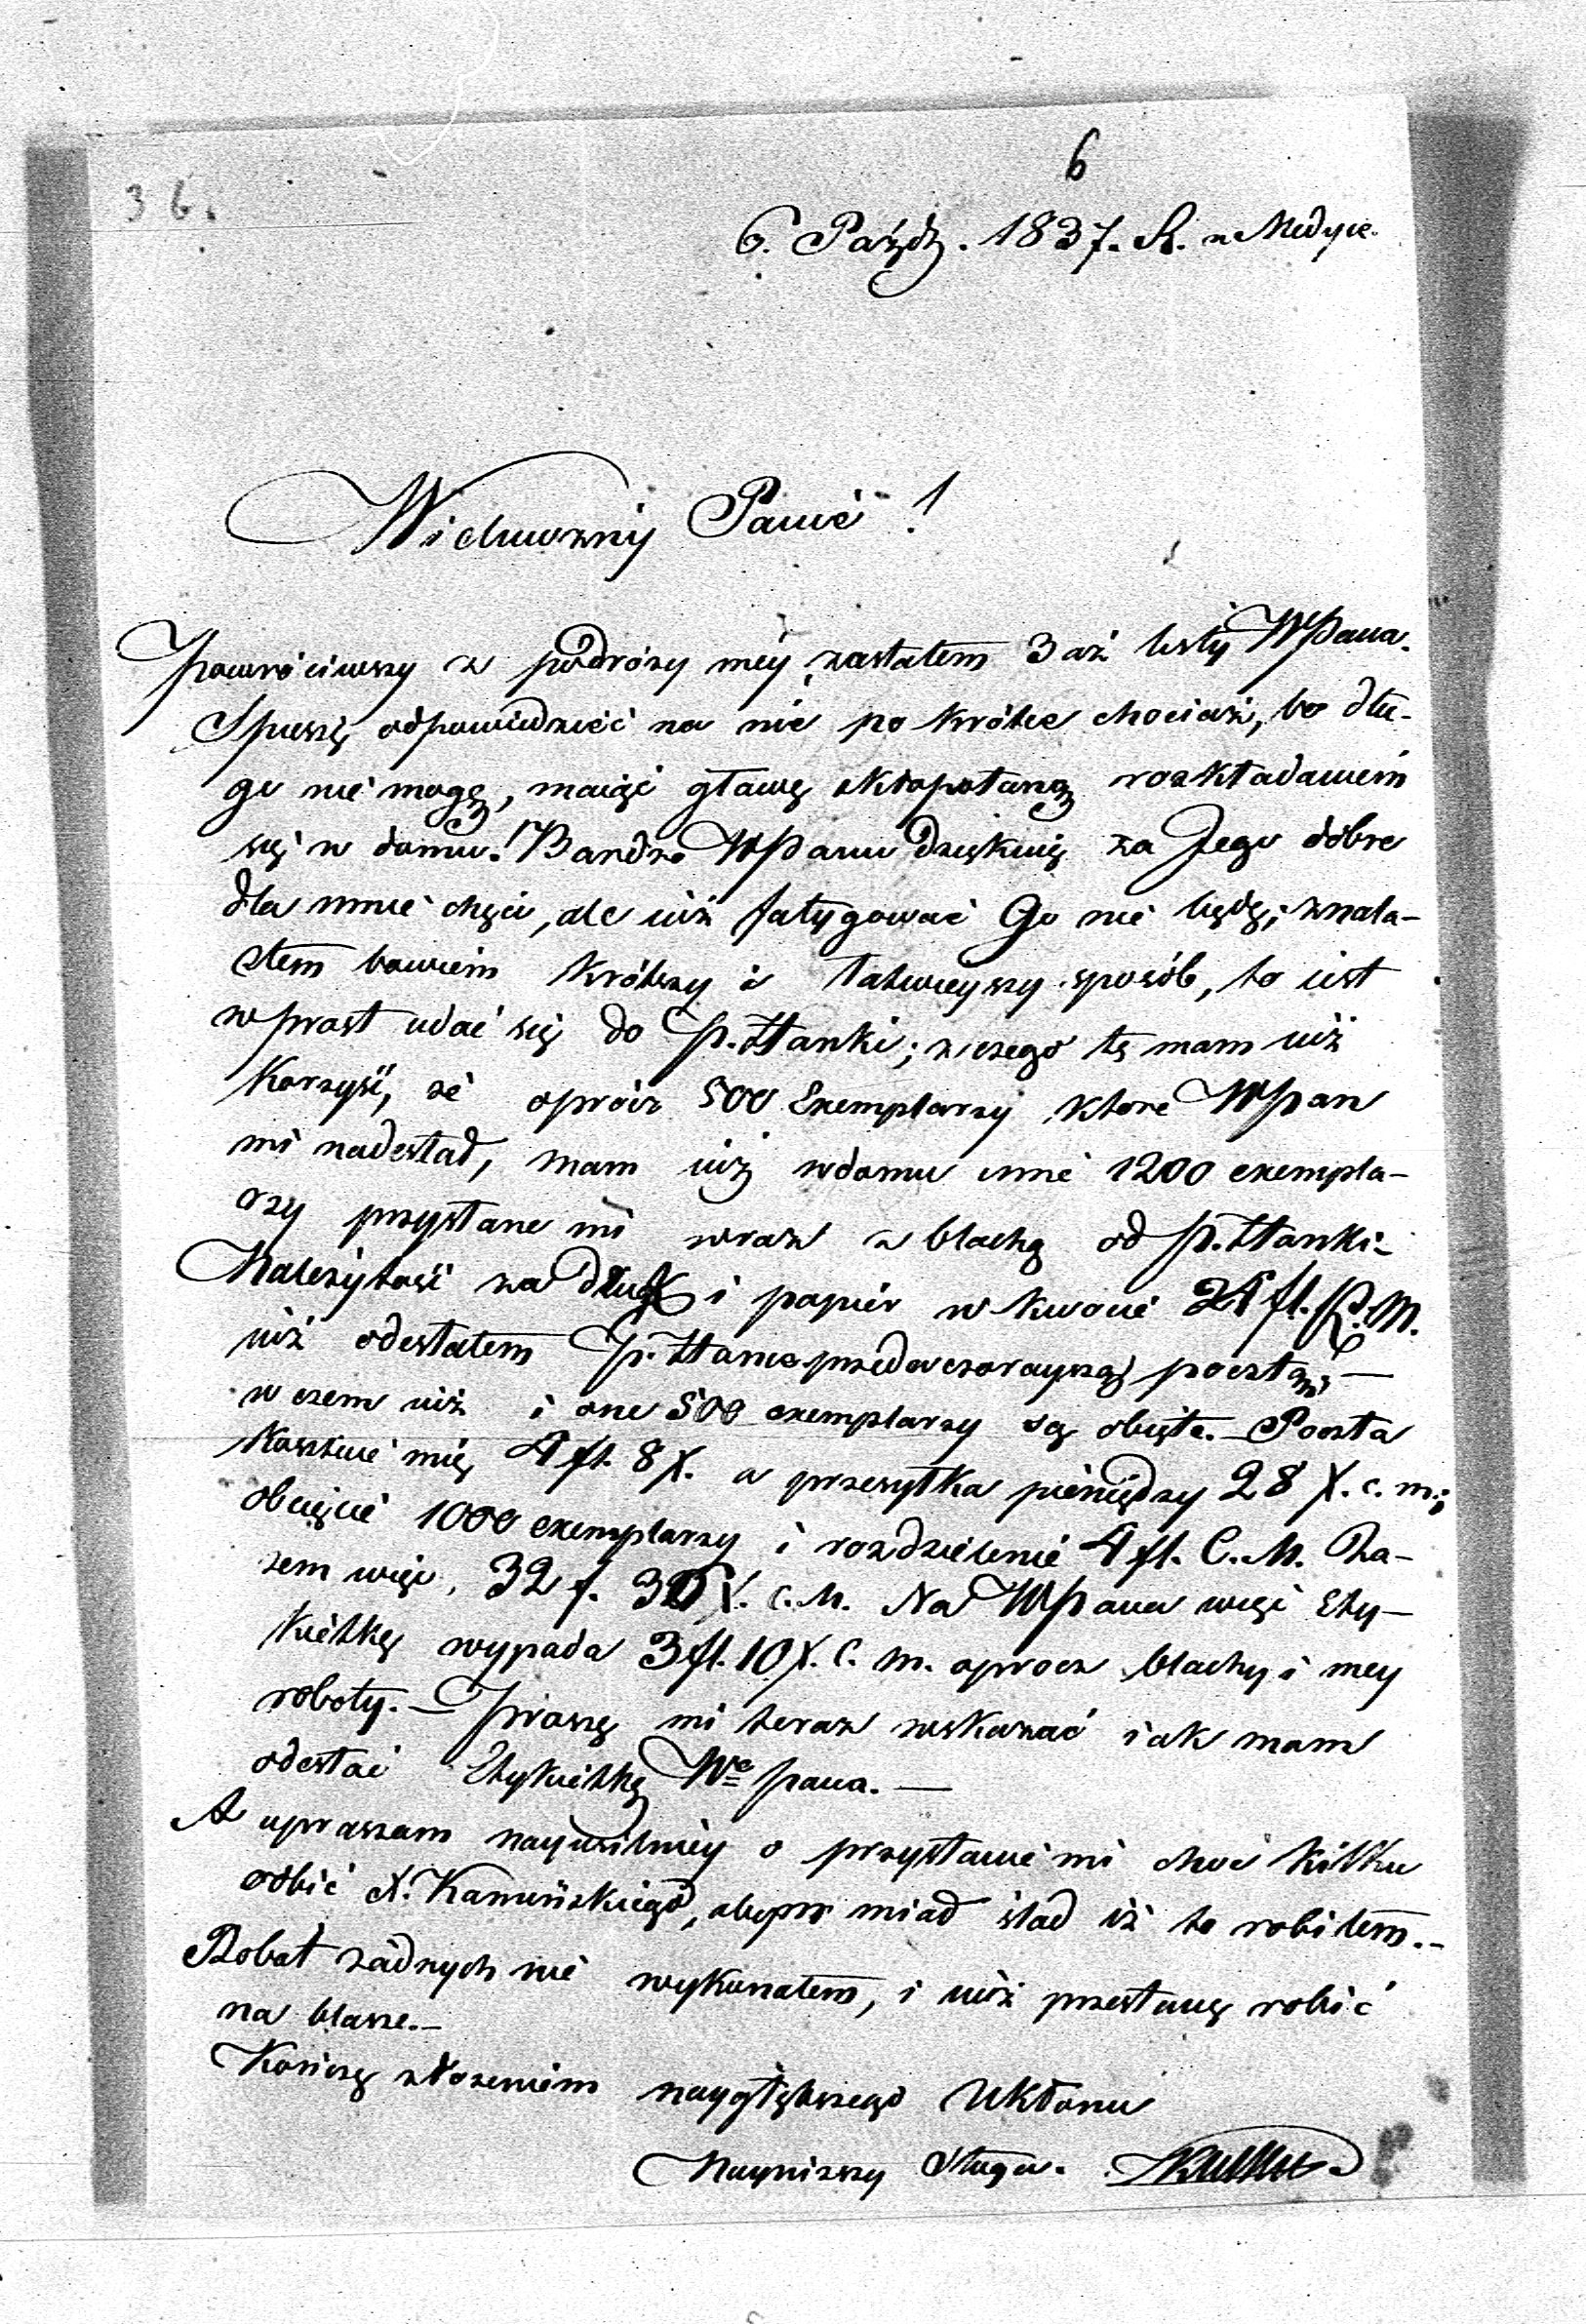 6
36.
6. Paźdz. 1837. R. w Medyce.
Wielmożny Panie!
Powróciwszy z podróży mey zastałem 3 aż listy WPana.
Spieszę odpowiedzieć na nie po krótce chociaż, bo dłu-
go nie mogę, maiąc głowę okłopotaną rozkładaniem
się w domu. Bardzo WPanu dziękuię za Jego dobre
dla mnie chęci, ale iuż fatygować Go nie będę; znala-
złem bowiem krótszy i łatwieyszy sposób, to iest
wprost udać się do p. Hanki; z czego tę mam iuż
korzyść, że oprócz 500 Exemplarzy które WPan
mi nadesłał, mam iuż w domu inne 1200 exempla-
rzy przysłane mi wraz z blachą od p. Hanki.
Należytość za druk i papier w kwocie 24 fl. C. M.
iuż odesłałem p. Hance przedwczorayszą pocztą, —
w czem iuż i one 500 exemplarzy są obięte. — Poczta
kosztuie mię 4 fl. 8 X. a przesyłka pieniędzy 28 X. c. m.;
obcięcie 1000 exemplarzy i rozdzielenie 4 fl. C. M. Ra-
zem więc, 32 f. 36 X. C. M. Na WPana więc Ety-
kietkę wypada 3 fl. 10 X. C. m. oprocz blachy i mey
roboty. — Proszę mi teraz wskazać iak mam
odesłać Etykietkę We pana. —
A upraszam nayusilniey o przysłanie mi choć kilku
odbić X. Kamińskiego, abym miał ślad iż to robiłem. —
Robot żadnych nie wykonałem, i iuż przestaię robić
na blasze. —
Kończę złożeniem naygłębszego Ukłonu
Nayniższy Sługa.